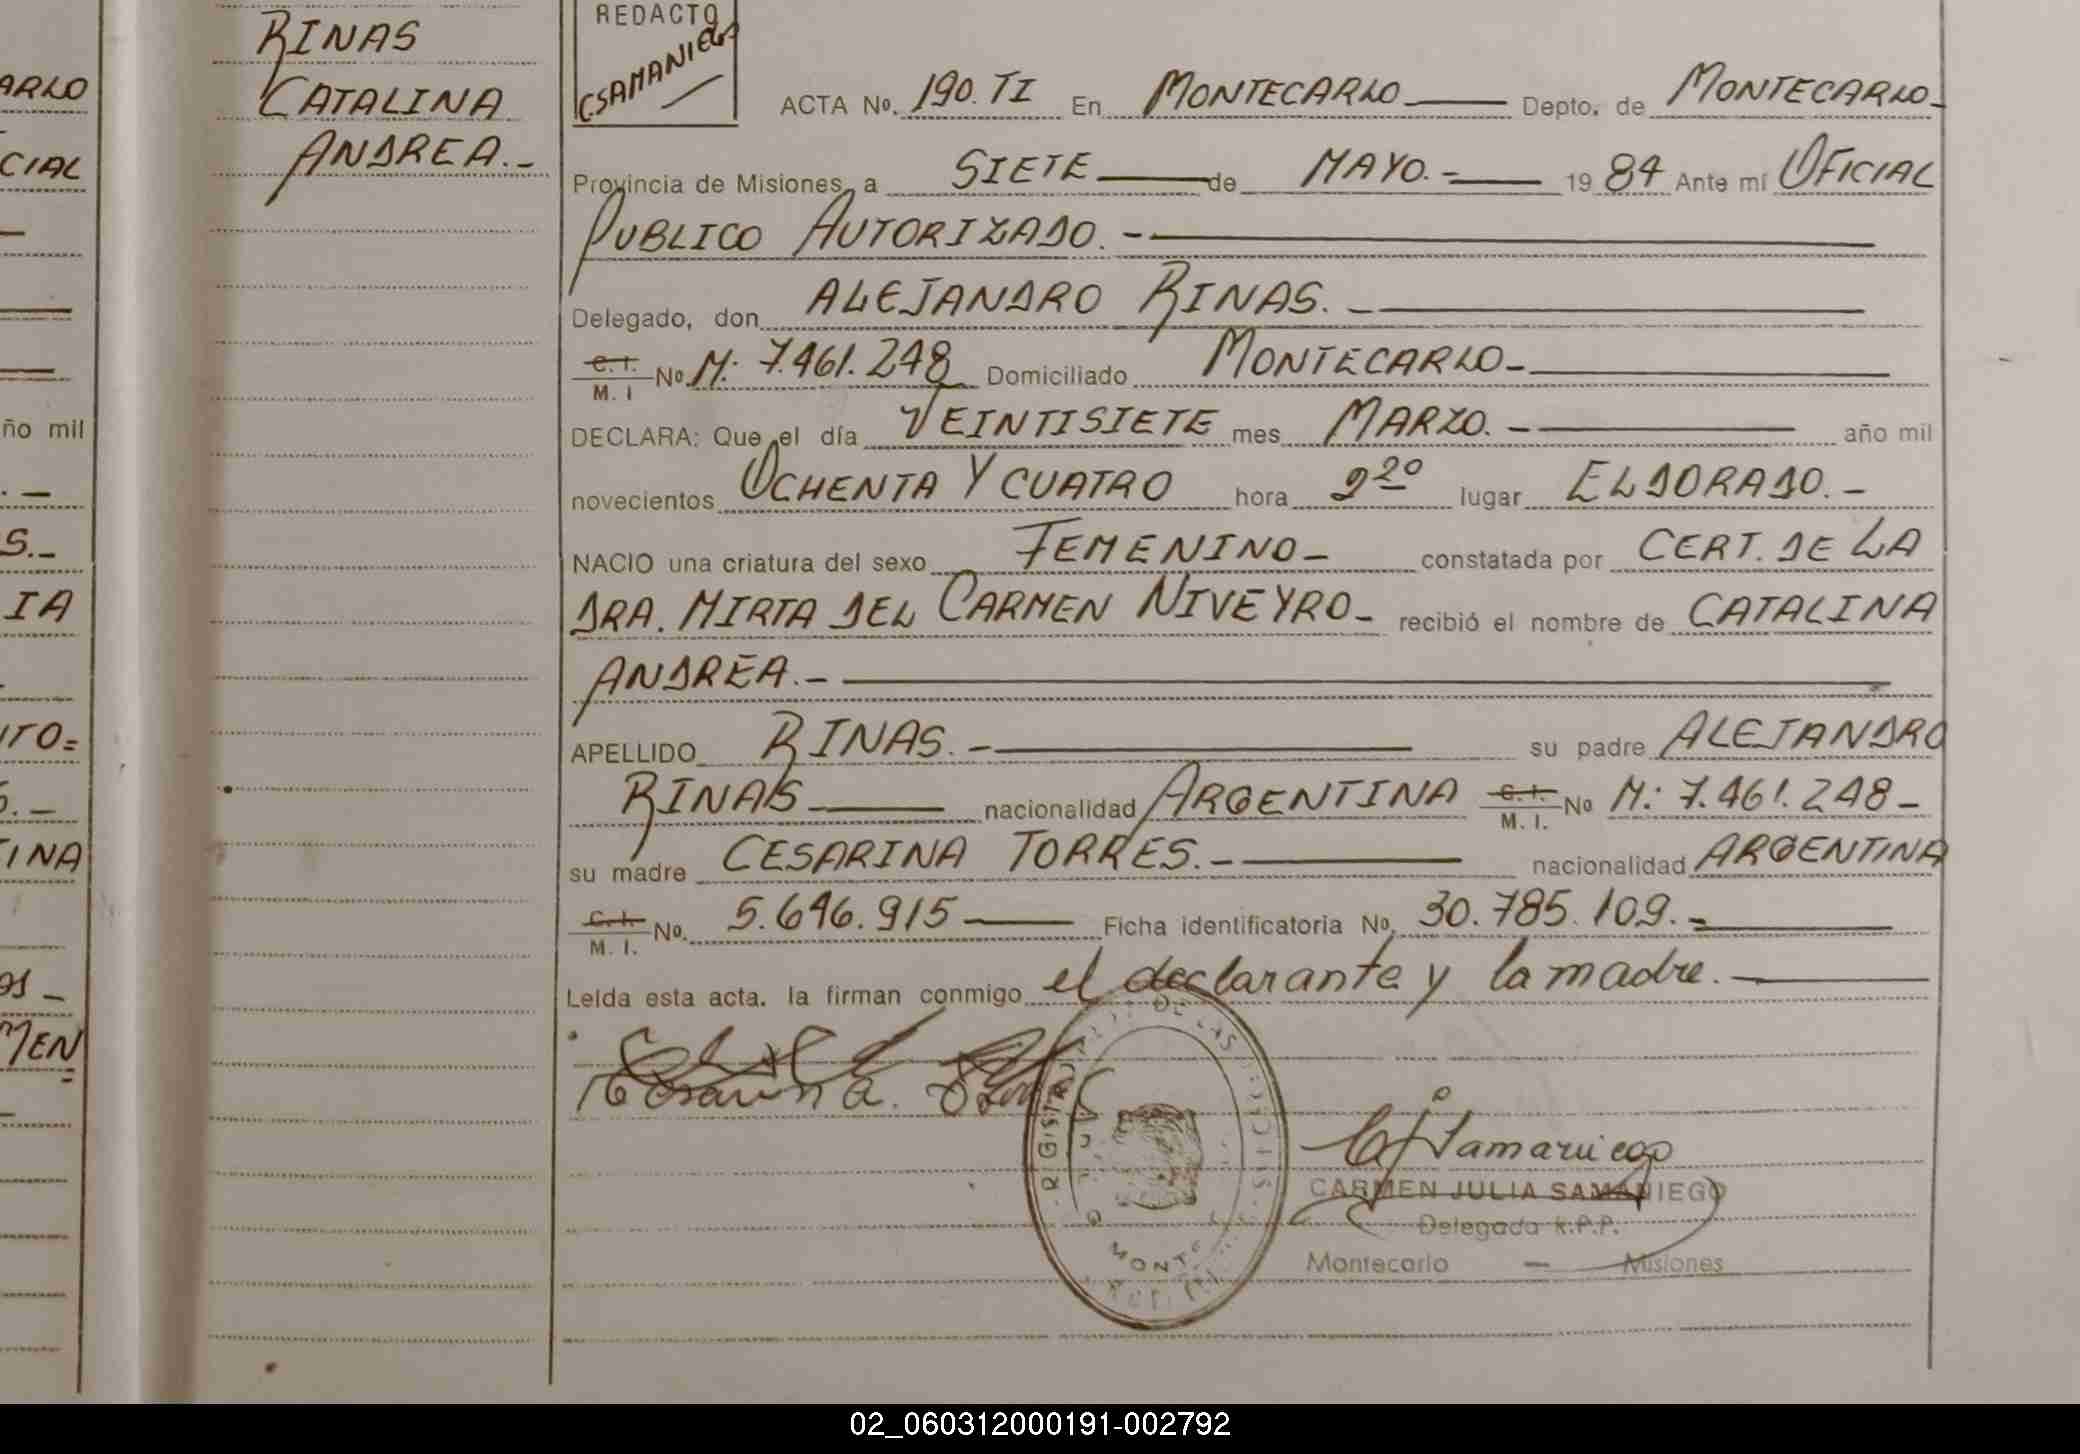 RINAS
CATALINA
ANDREA.-
REDACTO
CSAMANIEGO
ACTA No. 190. TI En MONTECARLO Depto. de MONTECARLO-
Provincia de Misiones, a SIETE de MAYO.- 19 84 Ante mí OFICIAL
PUBLICO AUTORIZADO.-
Delegado, don ALEJANDRO RINAS.-
C. I. M. I No M: 7.461.248 Domiciliado MONTECARLO-
DECLARA: Que el día VEINTISIETE mes MARZO.- año mil
novecientos OCHENTA Y CUATRO hora 2 20 lugar ELDORADO.-
NACIO una criatura del sexo FEMENINO- constatada por CERT. DE LA
DRA. MIRTA DEL CARMEN NIVEYRO- recibió el nombre de CATALINA
ANDREA.-
APELLIDO RINAS.- su padre ALEJANDRO
RINAS nacionalidad ARGENTINA C. I. M. I. No M: 7.461.248-
su madre CESARINA TORRES.- nacionalidad ARGENTINA
C. I. M. I. No. 5.696.915 Ficha identificatoria No. 30.785.109.-
Leída esta acta. la firman conmigo el declarante y la madre.-
CARMEN JULIA SAMANIEGO
Delegada R.P.P.
Montecarlo - Misiones
ARLO
CIAL
ño mil
S.-
IA
TO=
S.-
TINA
MEN
02_060312000191-002792